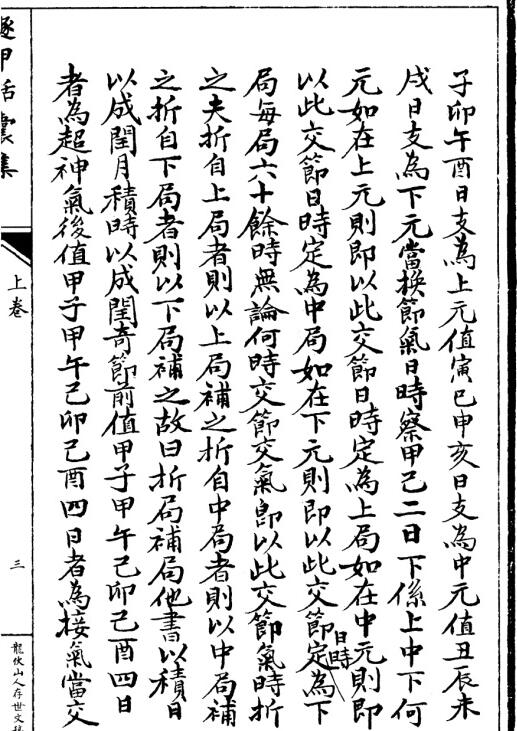 子卯午酉日支為上元值寅巳申亥日支為中元值丑辰未
戌日支為下元當換節氣日時察甲己二日下係上中下何
元如在上元則即以此交節日時定為上局如在中元則即
以此交節日時定為中局如在下元則即以此交節日時定為下
局每局六十餘時無論何時交節交氣即以此交節氣時折
之夫折自上局者則以上局補之折自中局者則以中局補
之折自下局者則以下局補之故曰折局補局他書以積日
以成閏月積時以成閏奇節前值甲子甲午己卯己酉四日
者為超神氣後值甲子甲午己卯己酉四日者為接氣當交
遁甲括囊集
上卷
三
龍伏山人存世文稿